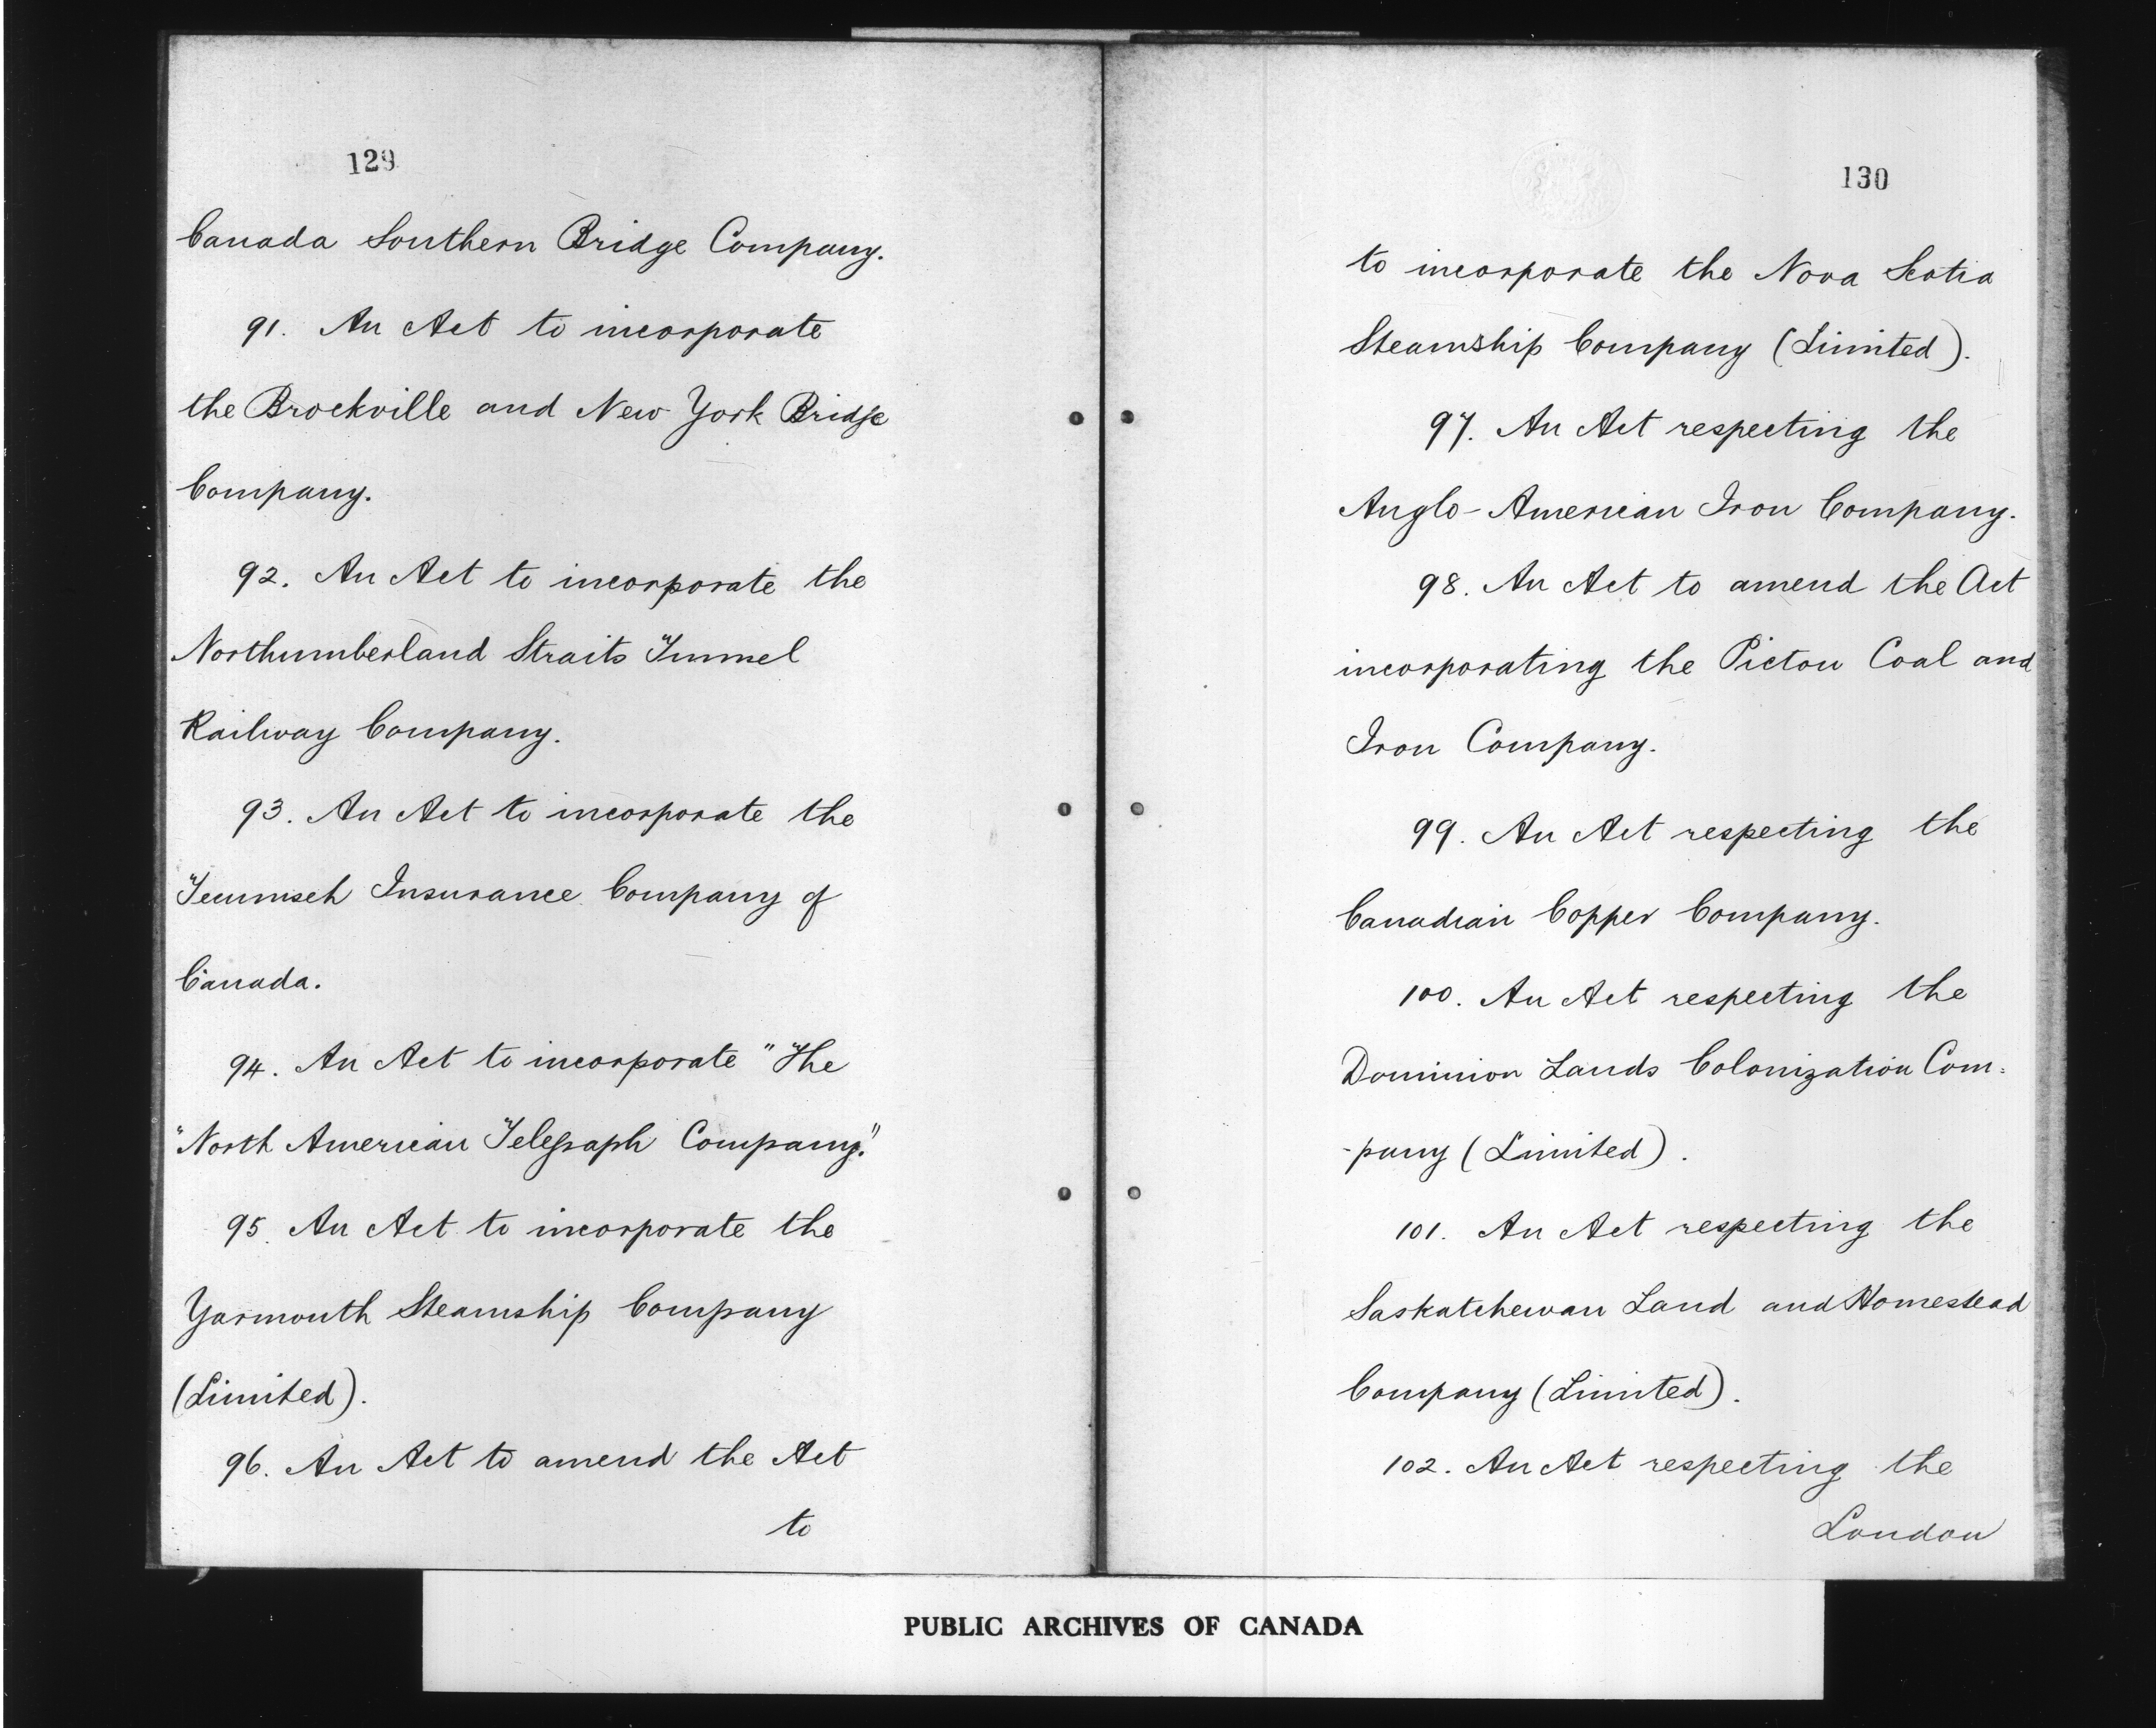 129
Canada Southern Bridge Company.
91. An Act to incorporate
the Brockville and New York Bridge
Company.
92. An Act to incorporate the
Northumberland Straits Tunnel
Railway Company.
93. An Act to incorporate the
Tecumseh Insurance Company of
Canada.
94. An Act to incorporate "The
"North American Telegraph Company."
95. An Act to incorporate the
Yarmouth Steamship Company
(Limited).
96. An Act to amend the Act
to
130
to incorporate the Nova Scotia
Steamship Company (Limited).
97. An Act respecting the
Anglo-American Iron Company.
98. An Act to amend the Act
incorporating the Pictou Coal and
Iron Company.
99. An Act respecting the
Canadian Copper Company.
100. An Act respecting the
Dominion Lands Colonization Com-
-pany (Limited).
101. An Act respecting the
Saskatchewan Land and Homestead
Company (Limited).
102. An Act respecting the
London
PUBLIC ARCHIVES OF CANADA